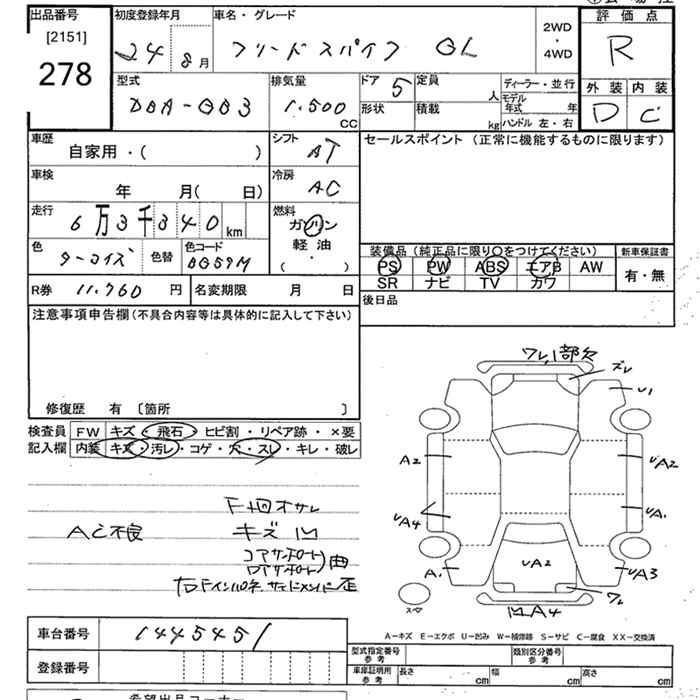 出品番号
[2151]
278
初度登録年月
24 8月
車名・グレード
フリードスパイク GL
2WD
・
4WD
評価点
R
型式
DBA-GB3
排気量
1.500
CC
ドア 5
形状
定員
人
積載
kg
ディーラー・並行
モデル
年式 年
ハンドル 左・右
外装 内装
D C
車歴
自家用・( )
シフト
AT
セールスポイント (正常に機能するものに限ります)
車検
年 月( 日)
冷房
AC
走行
6万3千340km
燃料
ガソリン
・
軽油
( ・ )
色
ターコイズ
色替
色コード
BG59M
装備品(純正品に限り○をつけてください)
PS PW ABS エアB AW
SR ナビ TV カワ
新車保証書
有・無
R券 11.760 円
名変期限 月 日
後日品
注意事項申告欄(不具合内容等は具体的に記入して下さい)
修復歴 有 〔箇所 〕
検査員
記入欄
FW キズ・飛石・ヒビ割・リペア跡・×要
内装 キズ・汚レ・コゲ・穴・スレ・キレ・破レ
ワレ 部欠
ズレ
U1
A2
UA2
UA4
UA1
A1
UA2
UA3
ワレ
スペア
凹A4
F廻オサレ
AC不良
キズ 凹
コアサポート
ロアサポート
)曲
右Fインパネ、サイドメンバー歪
車台番号 1445451
登録番号
A―キズ E―エクボ U―凹み W―補修跡 S―サビ C―腐食 XX―交換済
型式指定番号
参考
類別区分番号
参考
車庫証明用
参考
長さ cm
幅 cm
高さ cm
希望出品コーナー